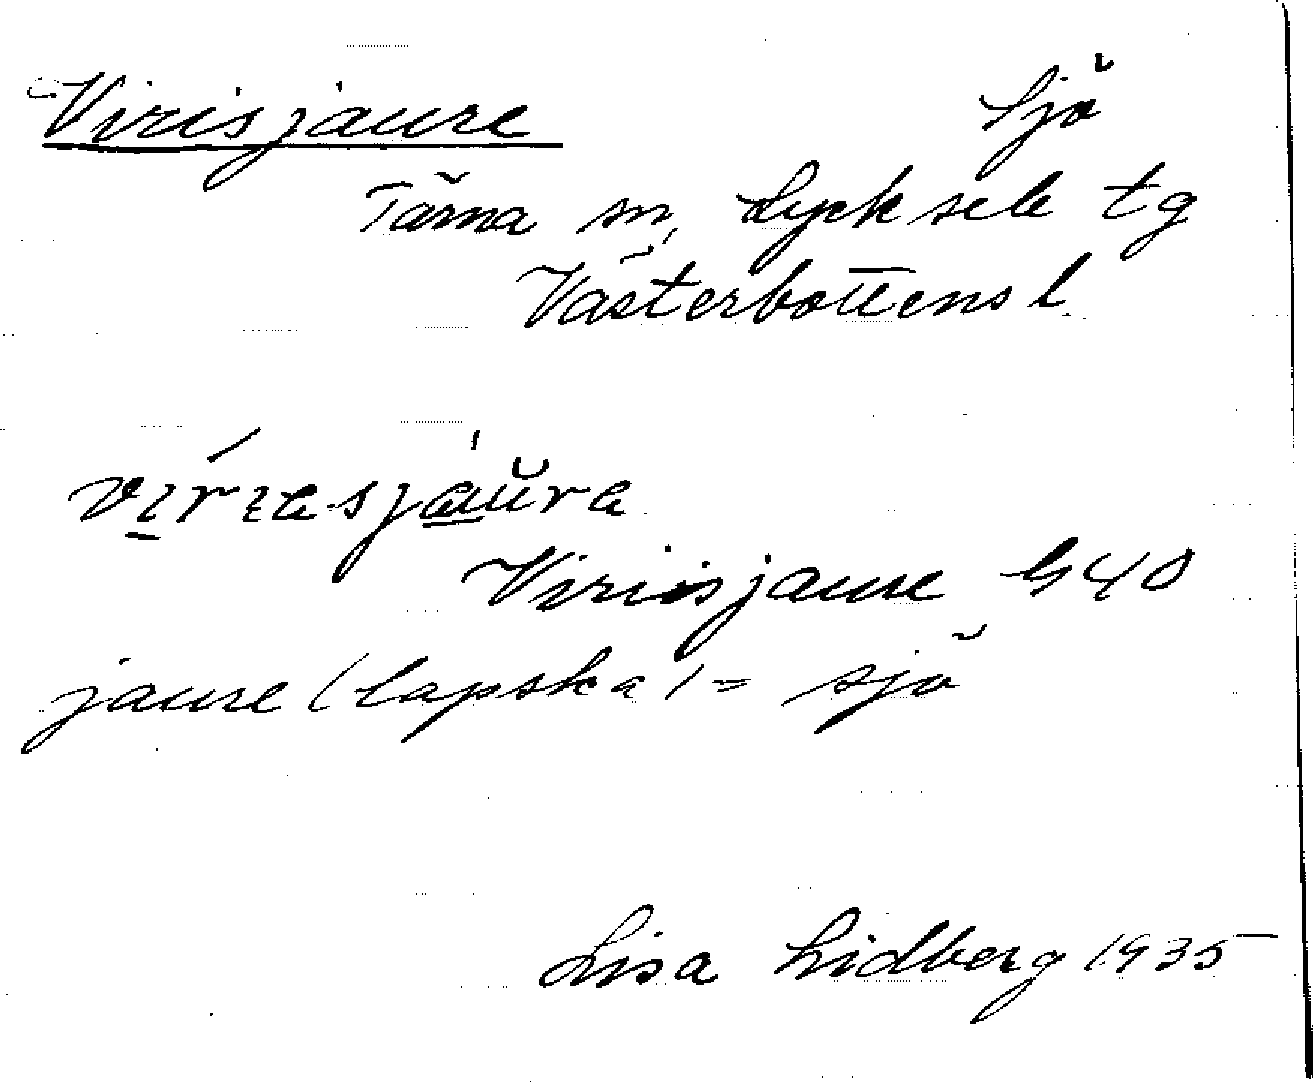 Virisjaure Sjö
Tärna sn, Lycksele tg
Västerbottens l.
Virisjaure G40
jaure (lapska) = sjö
Lisa Lidberg 1935